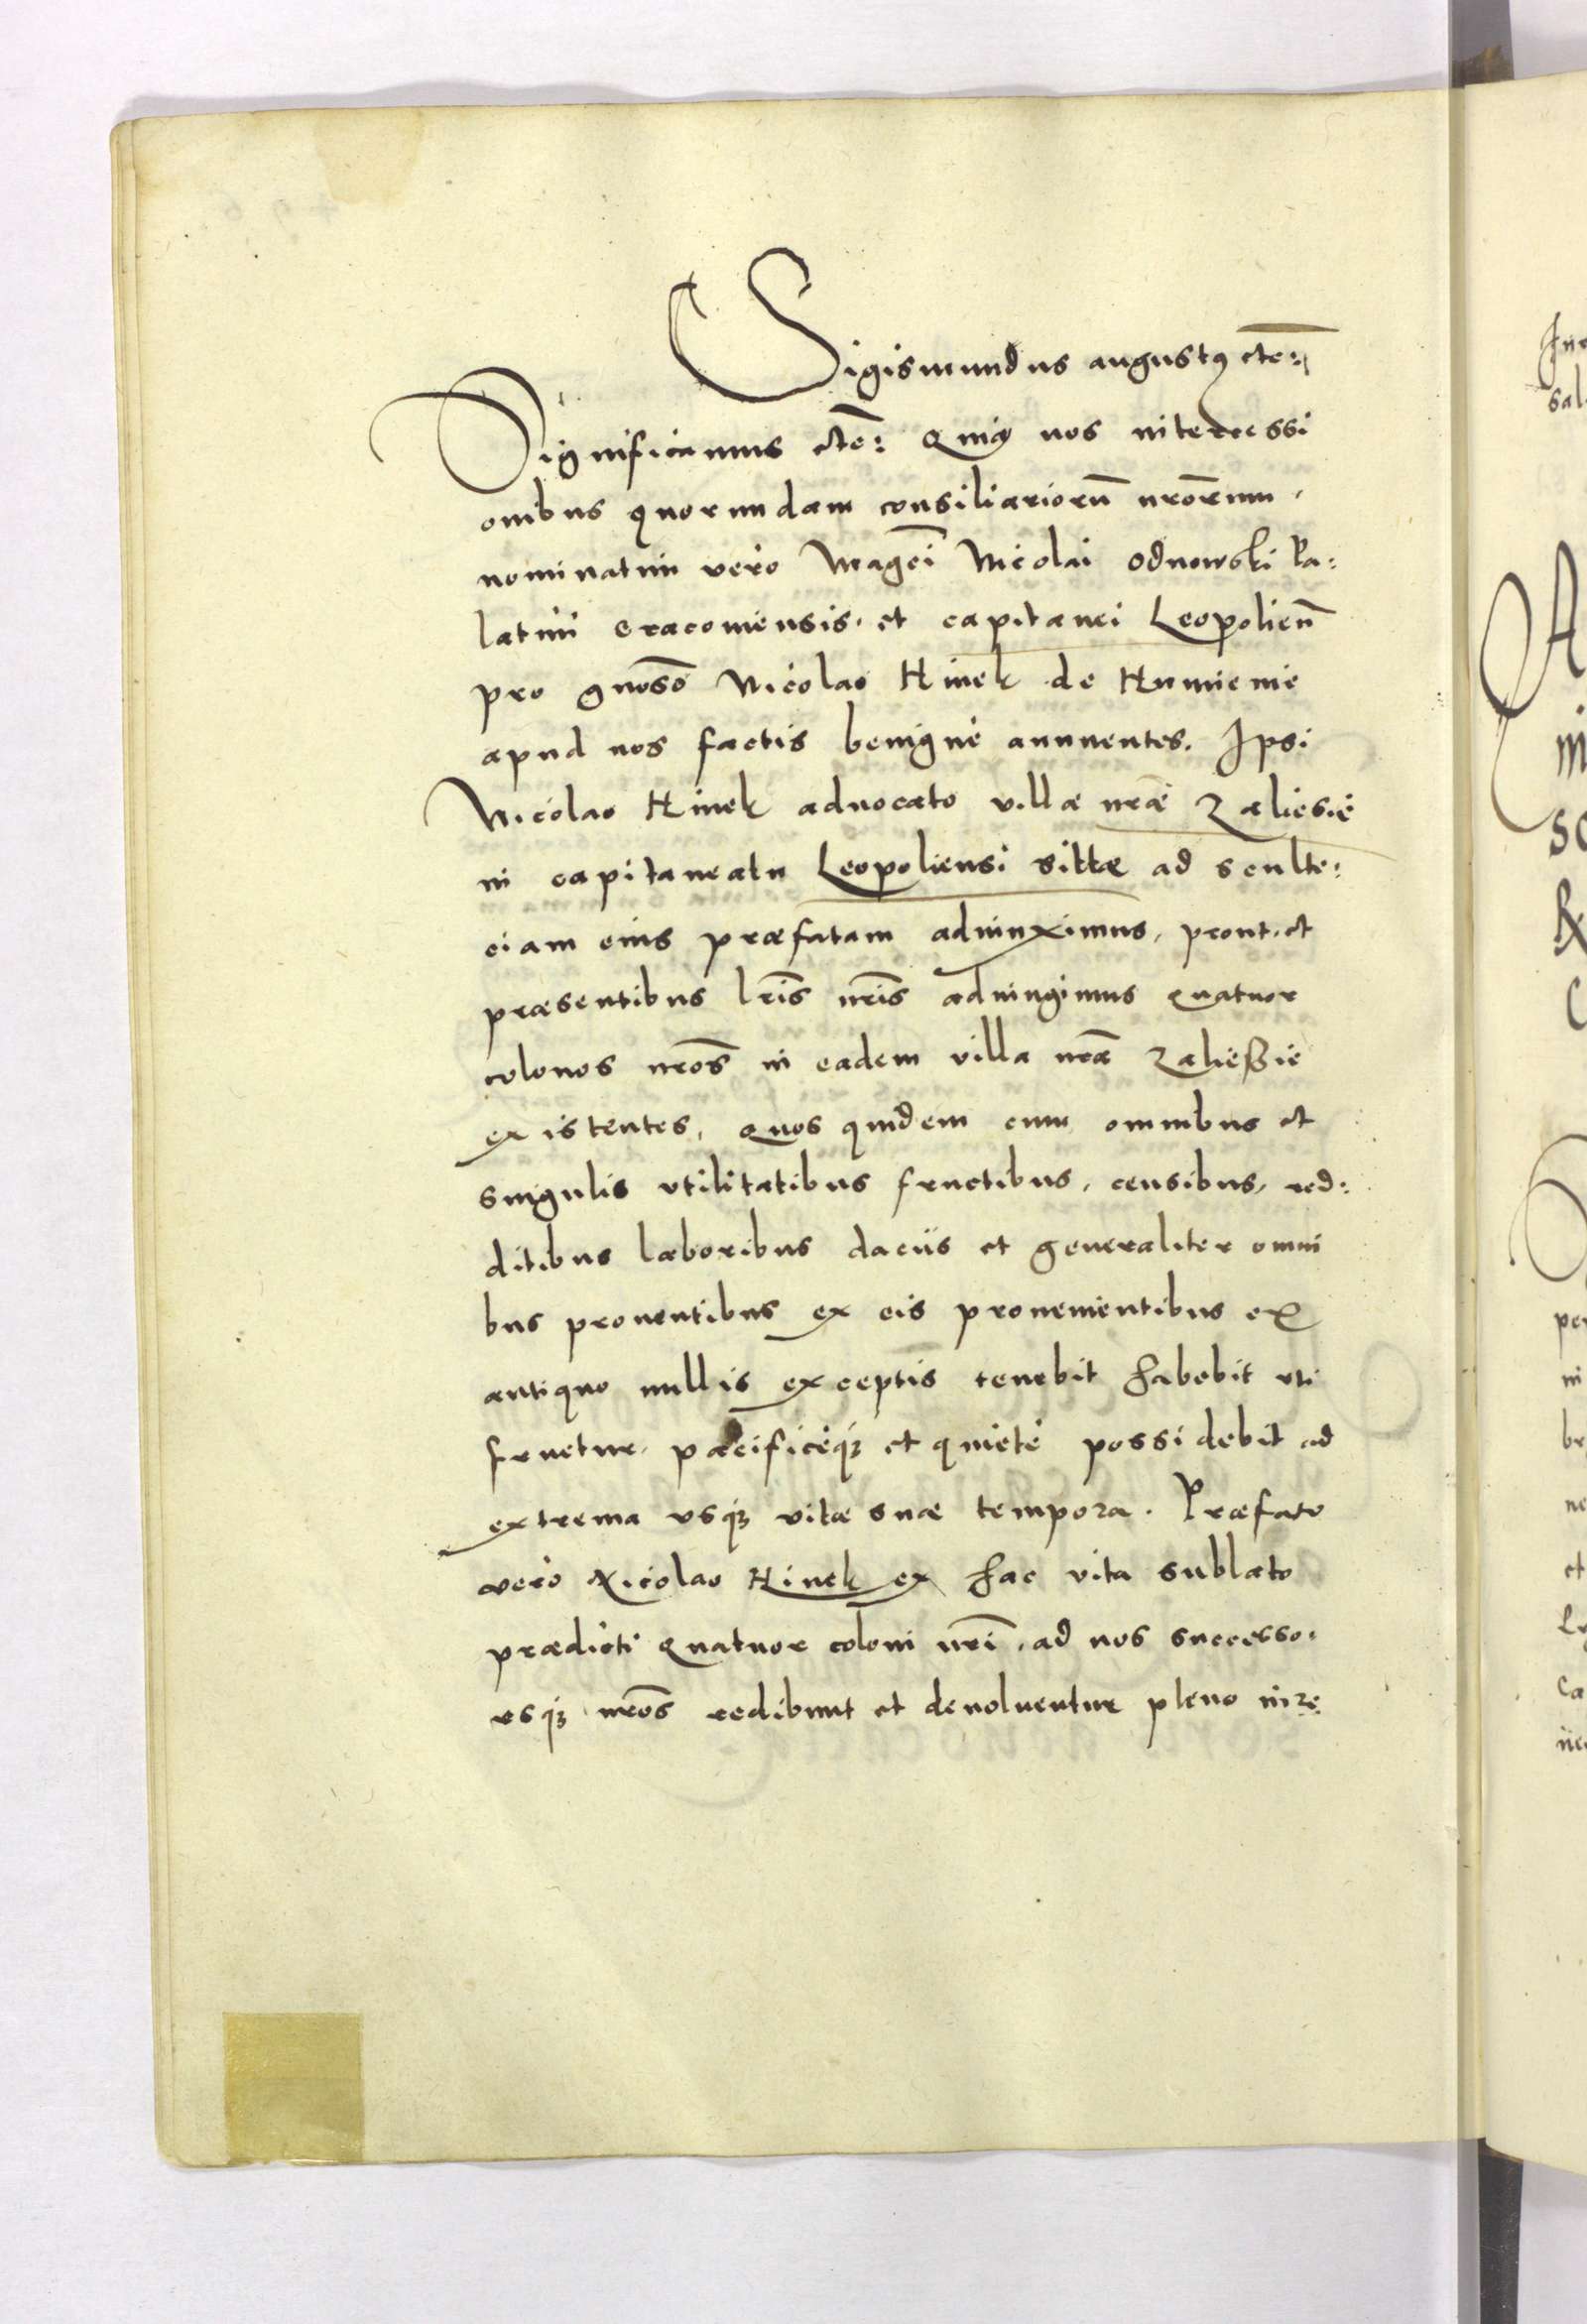 Sigismundus augustꝯ etc̄:
Significamus etc̄: Quia nos intercessi
onibus quorundam consiliariorū nr̄orum,
nominatim vero Magc̄i Nicolai Odnowski Pa:
latini Cracoviensis, et capitanei Leopolieñ
pro gnoso Nicolao Hinek de Humienie
apud nos factis benigne annuentes. Ipsi
Nicolao Hinek advocato villæ nr̄æ Zaliesie
in capitaneatu Leopoliensi sittæ ad sculte:
ciam eius præfatam adiunximus, prout et
præsentibus lr̄is nr̄is adiungimus quatuor
colonos nr̄os in eadem villa nr̄a Zalieszie
existentes, quos quidem cum omnibus et
singulis utilitatibus fructibus, censibus, red:
ditibus laboribus daciis et generaliter omni
bus proventibus ex eis provenientibus ex
antiquo nullis exceptis tenebit habebit uti
fruetur, pacificeqꝫ et quiete possidebit ad
extrema usqꝫ vitæ suæ tempora. Præfato
vero Nicolao Hinek ex hac vita sublato
prædicti quatuor coloni nr̄i, ad nos successo:
resqꝫ nr̄os redibunt et devolventur pleno iure